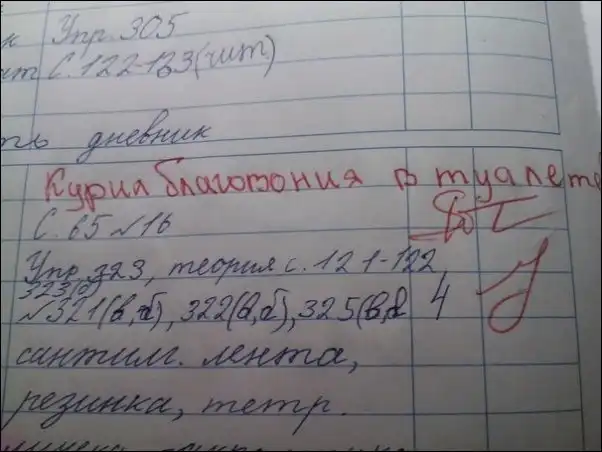 к Упр. 305
ит С. 122-123(чит)
ть дневник
Курил благовония в туалете
С. 65 №16
Упр. 323, теория с. 121-122,
323(б)
№321(в,б), 322(а,б), 325(в, 4
сантим. лента,
резинка, тетр.